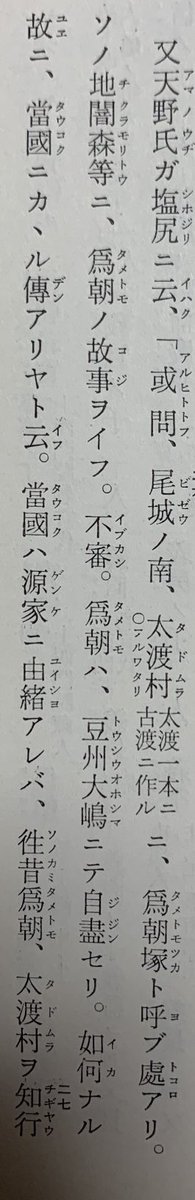 又天野氏ガ塩尻ニ云、「或問、尾城ノ南、太渡村太渡一本ニ古渡ニ作ルニ、爲朝塚ト呼ブ處アリ。
ソノ地闇森等ニ、爲朝ノ故事ヲイフ。不審。爲朝ハ、豆州大嶋ニテ自盡セリ。如何ナル
故ニ、當國ニカヽル傳アリヤト云。當國ハ源家ニ由緒アレバ、徃昔爲朝、太渡村ヲ知行